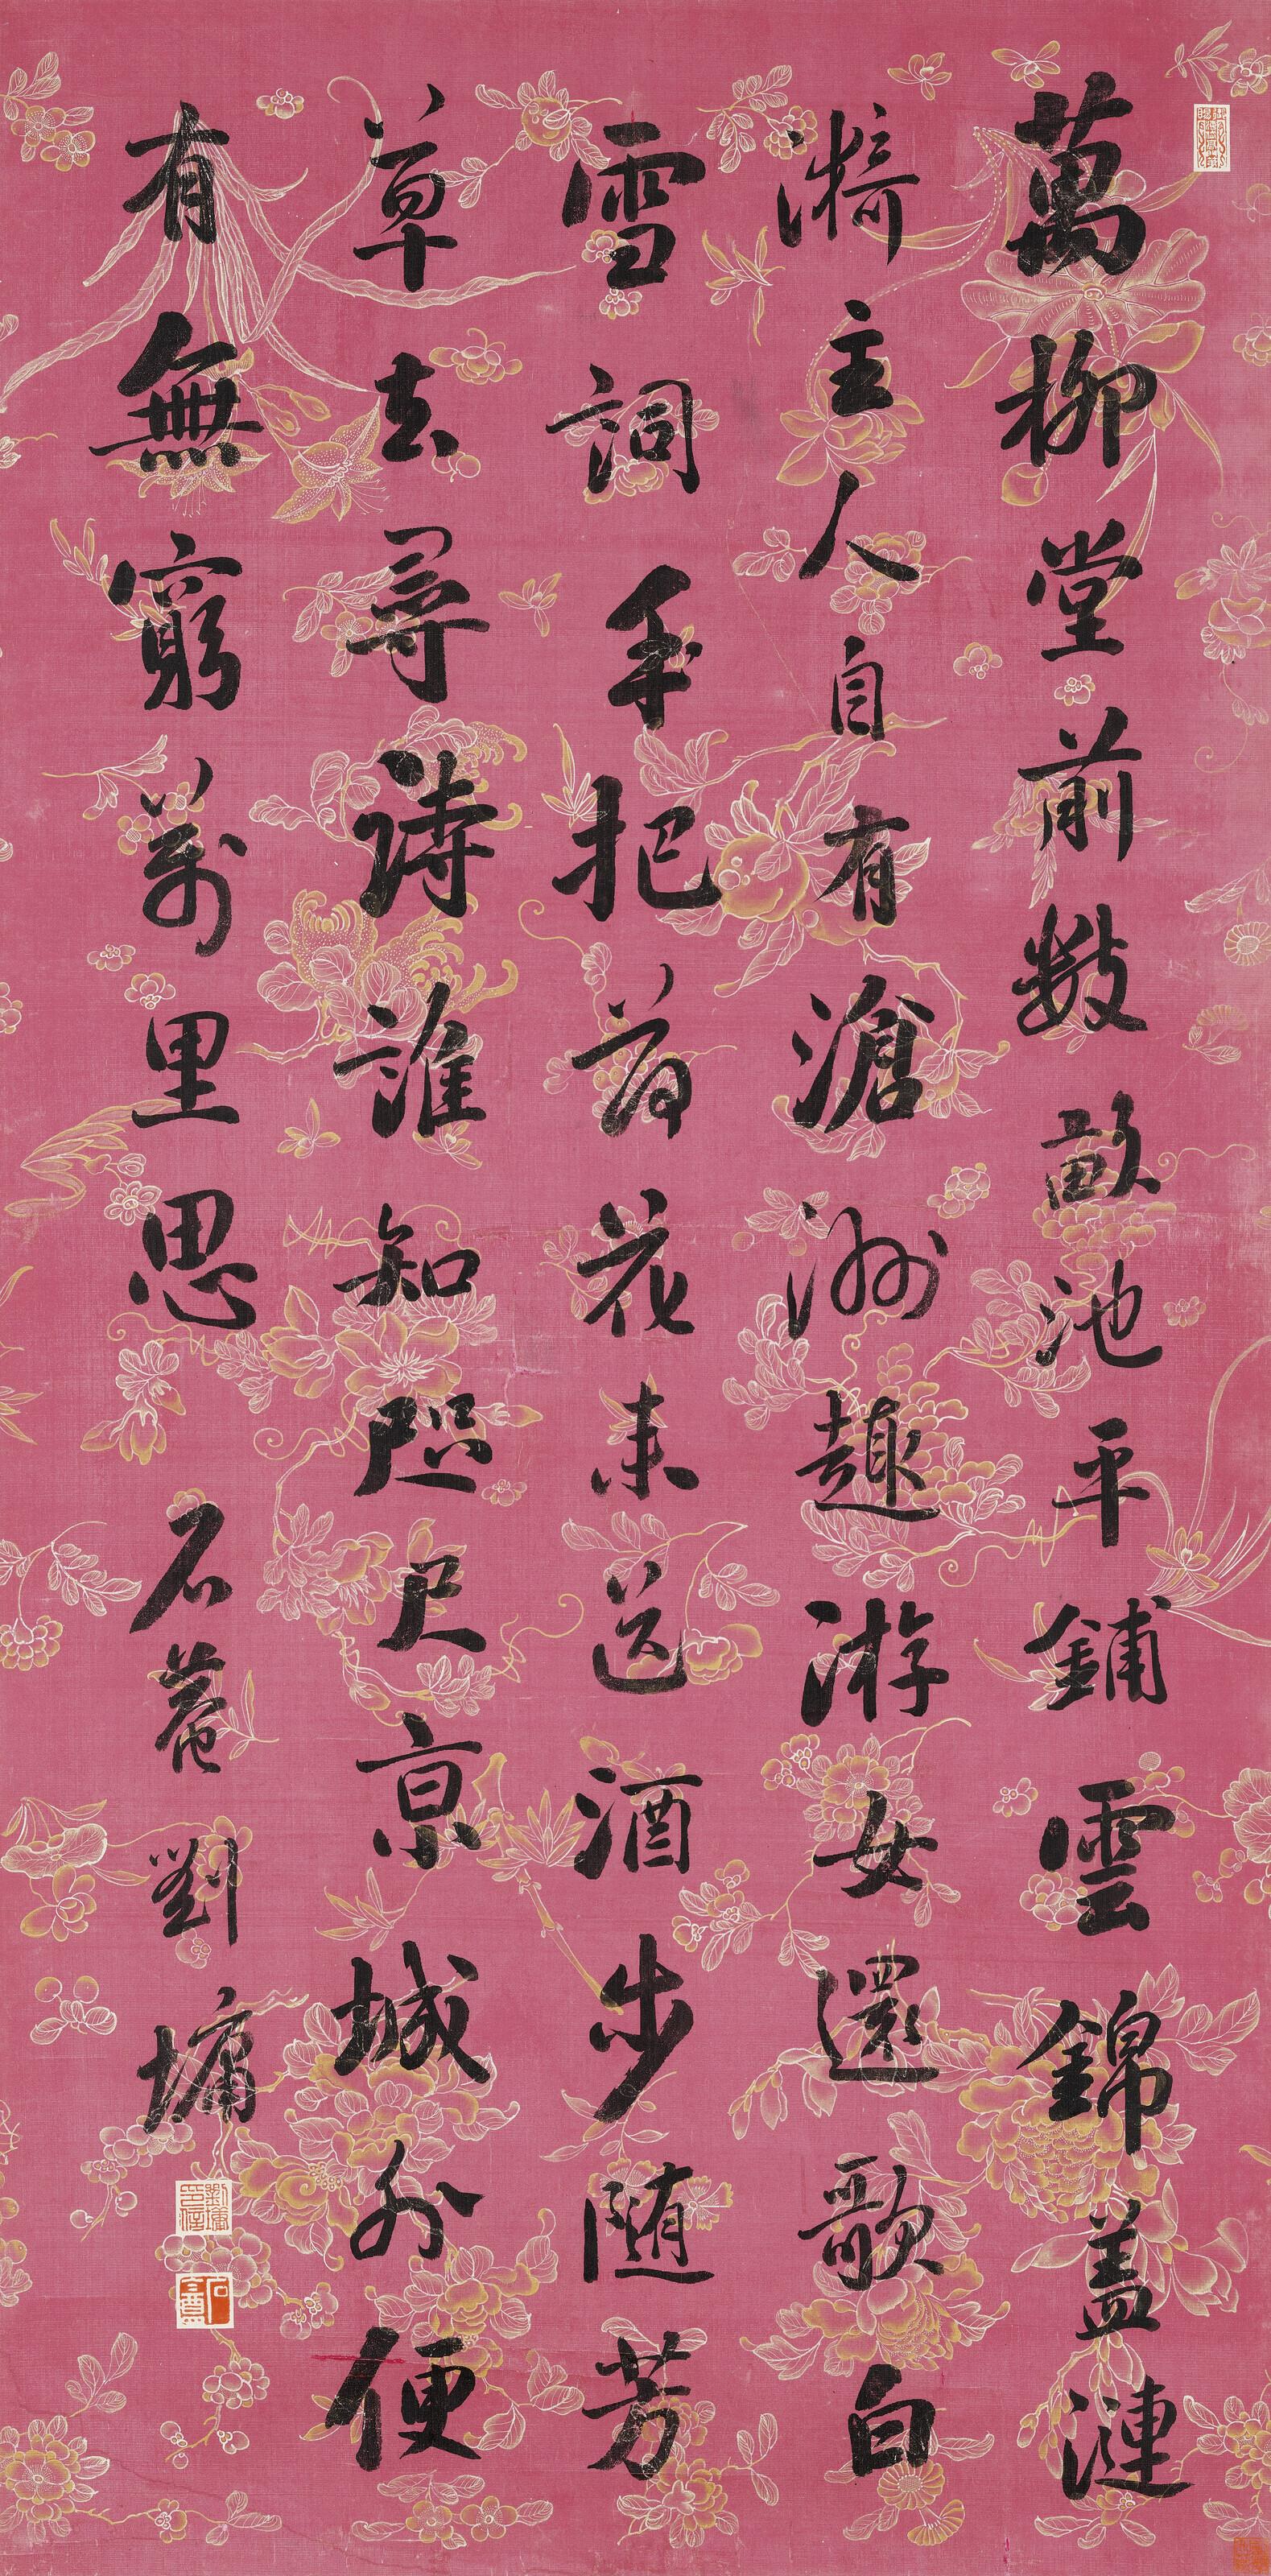 萬柳堂前數畝池平鋪雲錦盖漣
漪主人自有滄洲趣游女還歌白
雪詞手把荷花来送酒步随芳
草去尋詩誰知咫尺京城外便
有無窮萬里思
石菴劉墉